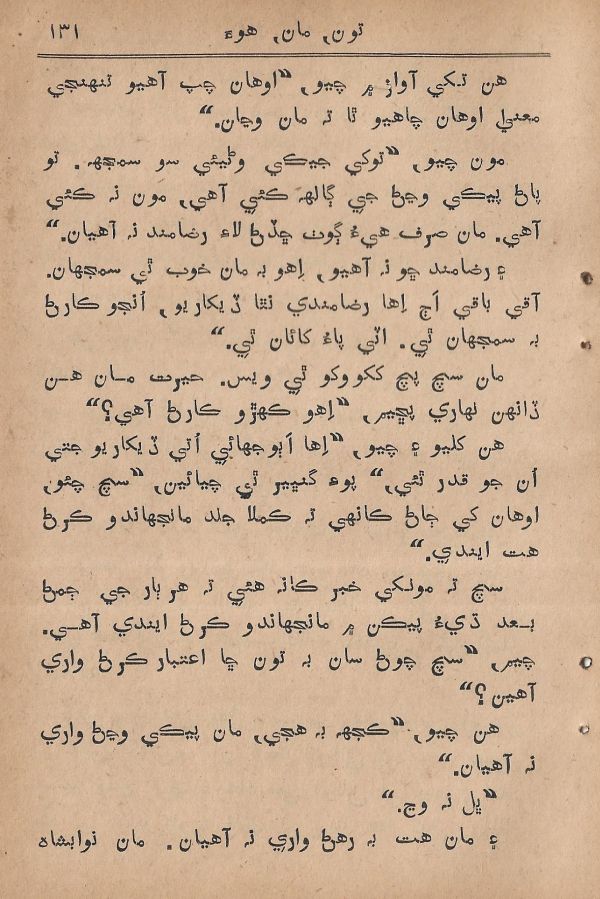 تون، مان، هوءَ ١٣١
هن تکي آواز ۾ چيو، ”اوهان چپ آهيو تنهنجي
معنيٰ اوهان چاهيو ٿا تہ مان وڃان.“
مون چيو، ”توکي جيڪي وڻيئي سو سمجهہ. تو
پاڻ پيڪي وڃڻ جي ڳالهہ ڪئي آهي، مون نہ ڪئي
آهي. مان صرف هيءُ ڳوٺ ڇڏڻ لاءِ رضامند نہ آهيان.“
۽ رضامند ڇو نہ آهيو، اِهو بہ مان خوب ٿي سمجهان.
آقي باقي اَڄ اِها رضامندي نٿا ڏيکاريو، اُنجو ڪارڻ
بہ سمجهان ٿي. اٽي پاءُ کائان ٿي.“
مان سچ پچ ڪڪووڪو ٿي ويس. حيرت مان هن
ڏانهن نهاري پڇيم، ”اِهو ڪهڙو ڪارڻ آهي؟“
هن کليو ۽ چيو، ”اِها اَٻوجهائي اُتي ڏيکاريو جتي
اُن جو قدر ٿئي،“ پوءِ گنڀير ٿي چيائين، ”سچ چئو،
اوهان کي ڄاڻ ڪانهي تہ ڪملا جلد مانجهاندو ڪرڻ
هت ايندي.“
سچ تہ مونکي خبر ڪانہ هئي تہ هر ٻار جي ڄمڻ
بعد ڌيءُ پيڪن ۾ مانجهاندو ڪرڻ ايندي آهي.
چيم، ”سچ چوڻ سان بہ تون ڇا اعتبار ڪرڻ واري
آهين؟“
هن چيو، ”ڪجهہ بہ هجي، مان پيڪي وڃڻ واري
نہ آهيان.“
”ڀل نہ وڃ.“
۽ مان هت بہ رهڻ واري نہ آهيان. مان نوابشاهہ